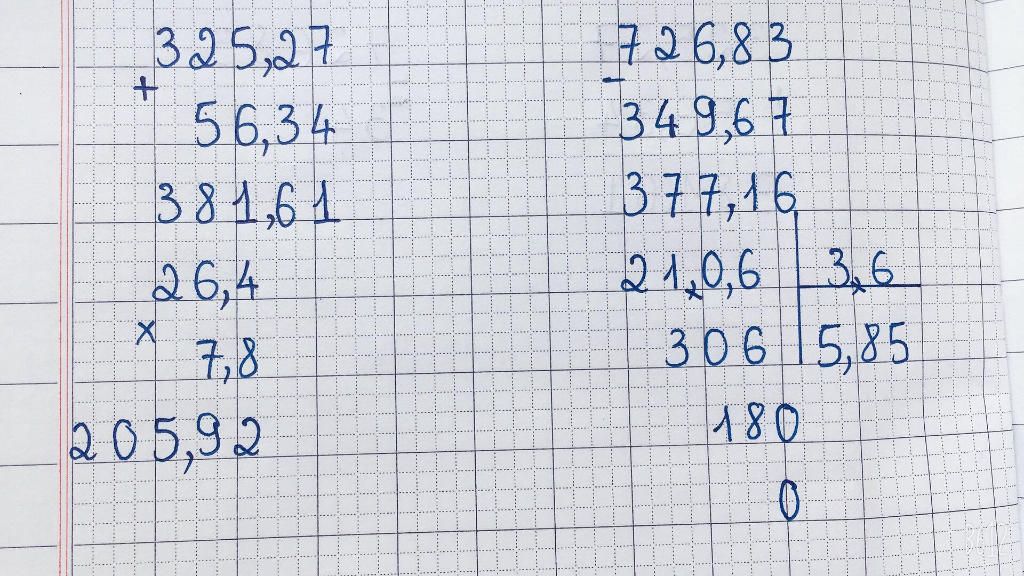 325,27
+
56,34
381,61
26,4
x
7,8
205,92
726,83
-
349,67
377,16
21,0,6 3,6
306 5,85
180
0